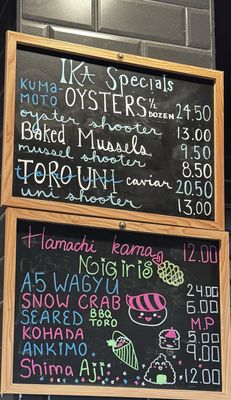 IKA Specials
KUMAMOTO OYSTERS ½ DOZEN 24.50
oyster shooter 13.00
Baked Mussels 9.50
mussel shooter 8.50
TORO UNI caviar 20.50
uni shooter 13.00
Hamachi kama 12.00
Nigiris
A5 WAGYU 24.00
SNOW CRAB 6.00
SEARED BBQ TORO M.P
KOHADA 5.00
ANKIMO 9.00
Shima Aji 12.00